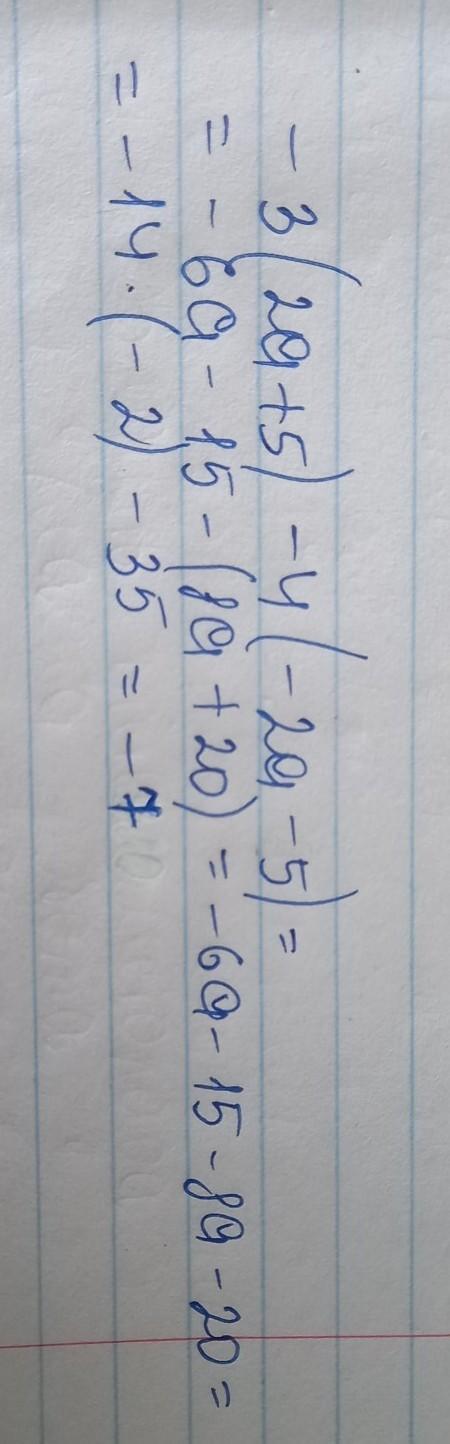 - 3 (2a+5) - 4 (- 2a - 5) =
= - 6a - 15 - (8a + 20) = - 6a - 15 - 8a - 20 =
= - 14 · (- 2) - 35 = - 7